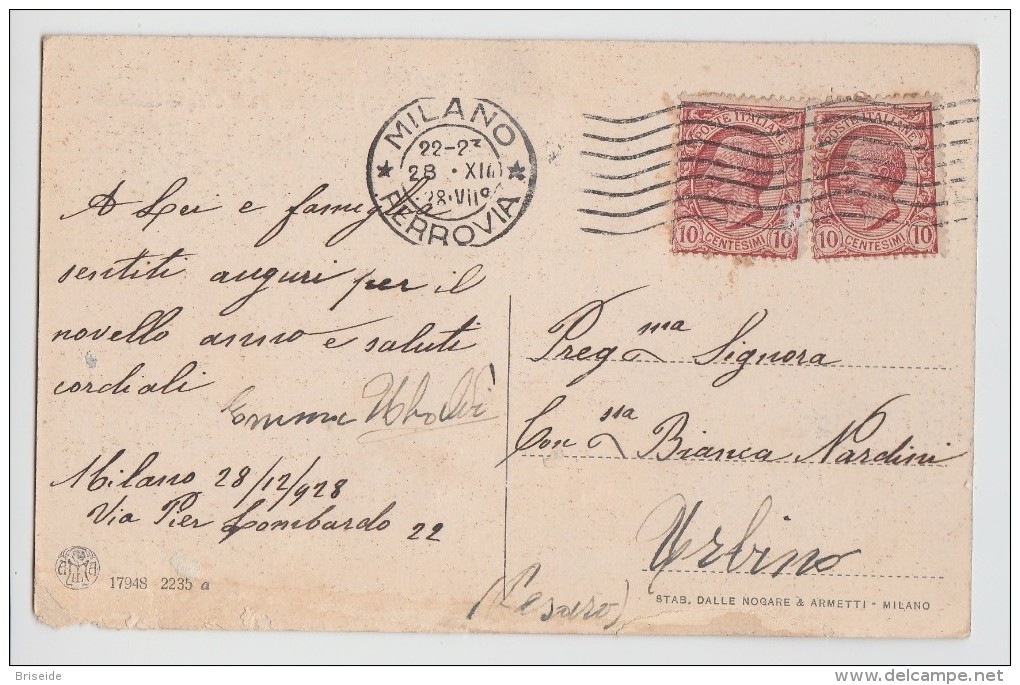 MILANO
22-23
28 · XII
28·VII
FERROVIA
POSTE ITALIANE
10 CENTESIMI 10
POSTE ITALIANE
10 CENTESIMI 10
A Lei e famiglia
sentiti auguri per il
novello anno e saluti
cordiali
Emma Ubaldi
Milano 28/12/928
Via Pier Lombardo 22
17948 2235 a
Preg ma Signora
Con ssa Bianca Nardini
Urbino
(Pesaro)
STAB. DALLE NOGARE & ARMETTI - MILANO
Briseide
www.delcampe.net